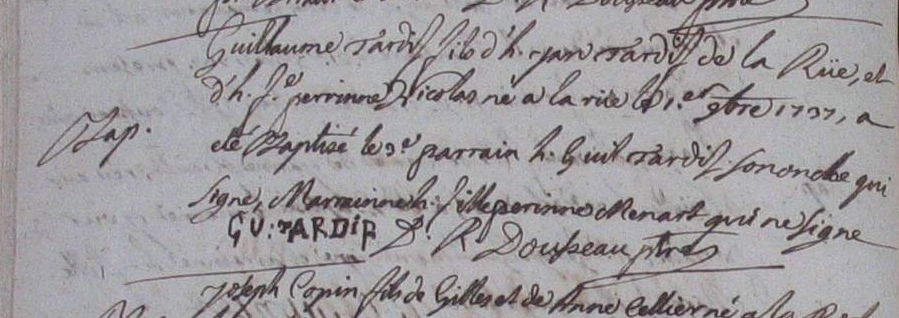 Guillaume Tardif fils d'h. jan Tardif de la Rüe, et
d'h. f.e perrinne Nicolas né a la rüe le 1.er 9bre 1737, a
Bap.
eté Baptisé le 3e parrain h. Guil Tardif son oncle qui
signe, Marrainne h. fille perinne Menart qui ne signe
GU: TARDIF D. R. Dousseau ptre
Joseph Copin fils de Gilles et de Anne Cellier né a la